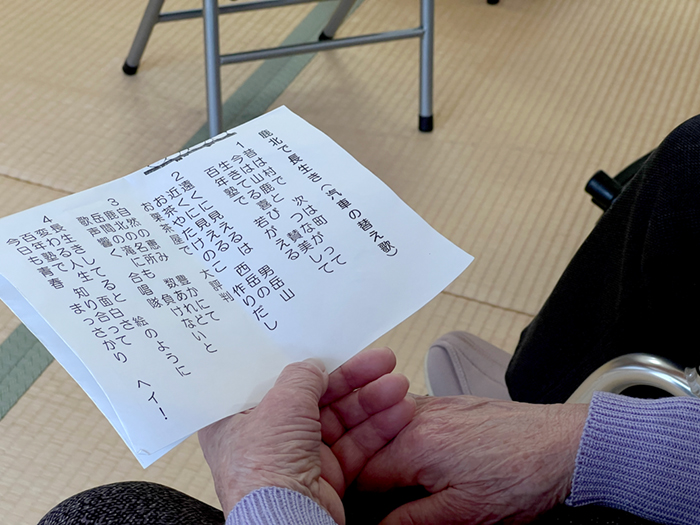 鹿北で長生き(汽車の替え歌)
1 昔は村で 次は町
今は山鹿と つながって
生きてる喜び 賛美して
百年塾で 若がえる
2 遠くに見えるは 男岳山
近くに見えるは 西岳の
お茶やたけのこ 作りだし
お楽茶屋で 大評判
3 自然の恵み 豊かにて
鹿北の名所も 数あれど
岳間の滝に 負けないと
歌声響く 合唱隊
4 長生きしてると 絵のように
変わる人生 面白さ
百年塾で 知り合って
今日も青春 まっさかり ヘイ!